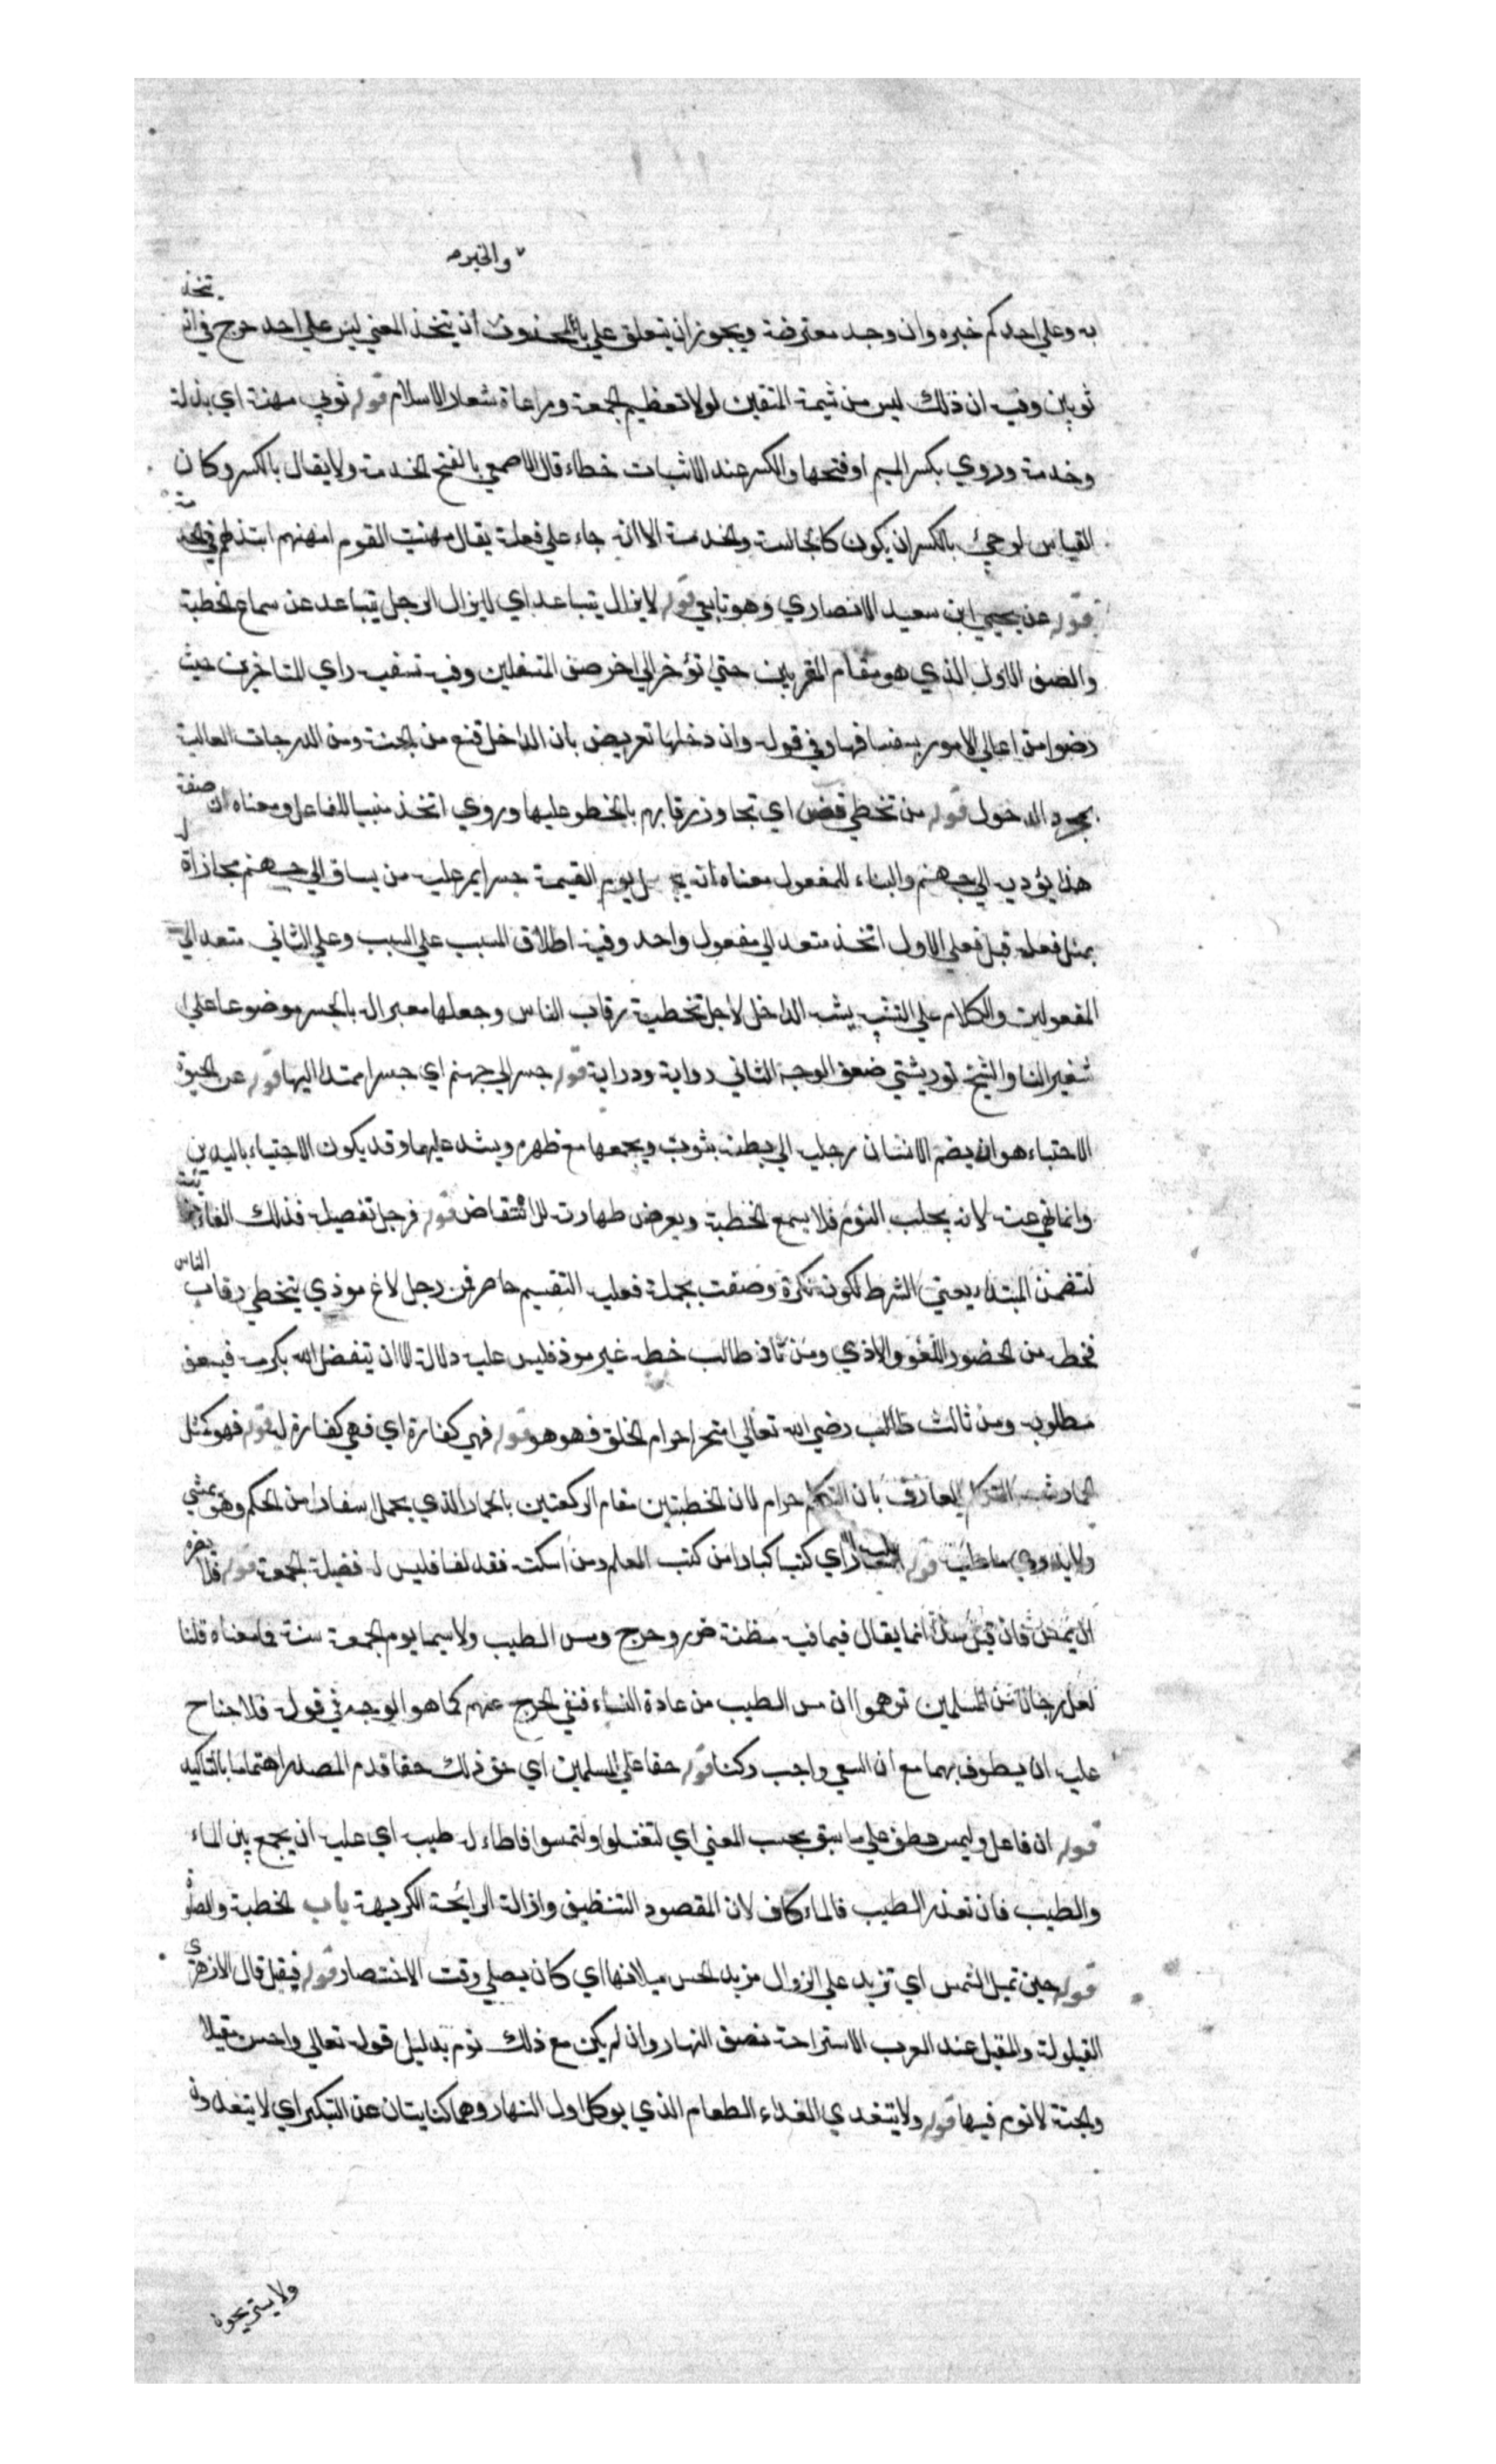 والخبر
تخذ
به وعلي احدكم خبره وان وجد معترضة ويجوز ان يتعلق علي بالمحذوف ان يتخذ المعني ليس علي احد حرج في ان
ثوبين وفيه ان ذلك ليس من شيمة المتقين لولا تعظيم الجمعة ومراعاة شعار الاسلام قوله ثوبي مهنة اي بذلة
وخدمة وروي بكسر الميم او فتحها والكسر عند الاثبات خطاء قال الاصمعي بالفتح الخدمة ولا يقال بالكسر وكان
القياس لو جيئ بالكسر ان يكون كالجالسة والخدمة الا انه جاء علي فعلة يقال مهنت القوم امهنهم ابتذلهم في الخد مة
قوله عن يحيي ابن سعيد الانصاري وهو تابعي قوله لا يزال يتباعد اي لا يزال الرجل يتباعد عن سماع الخطبة
والصف الاول الذي هو مقام المقربين حتي تؤخر الي اخر صف المتسفلين وفيه تسفيه راي المتاخرين حيث
رضوا من اعالي الامور بسفسافها وفي قوله وان دخلها تعريض بان الداخل قنع من الجنة ومن الدرجات العالية
بمجرد الدخول قوله من تخطي قضى اي تجاوز رقابهم بالخطو عليها وروي اتخذ مبنيا للفاعل ومعناه ان صنفة
هذا يؤديه الي جهنم والبناء للمفعول معناه انه يجعل يوم القيمة جسرا يمر عليه من يساق الي جهنم مجازاة له
بمثل فعله قبل فعلي الاول اتخذ متعد الي مفعول واحد وفيه اطلاق المسبب علي السبب وعلي الثاني متعد الي
المفعولين والكلام علي التشبيه يشبه الداخل لاجل تخطية رقاب الناس وجعلها معبرا له بالجسر موضوعا علي
شفير النار والشيخ توربشتي ضعف الوجه الثاني رواية ودراية قوله جسر الي جهنم اي جسرا ممتدا اليها قوله عن الحبوة
الاحتباء هو ان يضم الانسان رجليه الي بطنه بثوب ويجمعها مع ظهره ويشد عليهما وقد يكون الاحتباء باليدين
وانما نهي عنه لانه يجلب النوم فلا يسمع الخطبة ويعرض طهارته للانتقاض قوله فرجل تفصيل فذلك الفاء
لتضمن المبتداء معني الشرط لكونه نكرة وصفت بجملة فعليه التقسيم حاصر فمن رجل لاغ موذي يتخطي رقاب الناس
فخطه من الحضور اللغو والاذي ومن ثان طالب خطه غير موذ فليس عليه دلاله الا ان يتفضل الله بكرمه فيسعف
مطلوبه ومن ثالث طالب رضي الله تعالي احترام الخلق فهو هو قوله فهي كفارة اي فهي كفارة له قوله فهو كمثل
الحمار شبه المتكلم العارف بان التكلم حرام لان الخطبتين مقام الركعتين بالحمار الذي يحمل اسفارا من الحكم وهو يمشي
ولا يدري ما عليه قوله اسفارا اي كتبا كبارا من كتب العلم ومن اسكت فقد لغا فليس له فضيلة الجمعة قوله فلا يضره
ان يمس فان قيل هذا انما يقال فيما فيه مظنة ضرر وحرج ومس الطيب ولا سيما يوم الجمعة سنة فما معناه قلنا
لعل رجالا من المسلمين توهموا ان مس الطيب من عادة النساء فنفي الحرج عنهم كما هو الوجه في قوله فلا جناح
عليه ان يطوف بهما مع ان السعي واجب ركنا قوله حقا علي المسلمين اي حق ذلك حقا قدم المصدر اهتماما بالتاكيد
قوله ان فاعل وليمس عطف علي ما سبق بحسب المعني اي لتغتسلوا ولتمسوا فاطاء له طيب اي عليه ان يجمع بين الماء
والطيب فان تعذر الطيب فالماء كاف لان المقصود التنظيف وازالة الرائحة الكريهة باب الخطبة والصلوة
قوله حين تميل الشمس اي تزيد علي الزوال مزيد الحس ميلانها اي كان يصلي وقت الاختصار قوله فيقيل قال الازهري
القيلولة والمقيل عند العرب الاستراحة نصف النهار وان لم يكن مع ذلك نوم بدليل قوله تعالي واحسن مقيلا
والجنة لا نوم فيها قوله ولا يتغدي الغداء الطعام الذي يوكل اول النهار وهما كنايتان عن التبكير اي لا يتغدون
ولا يستريحون